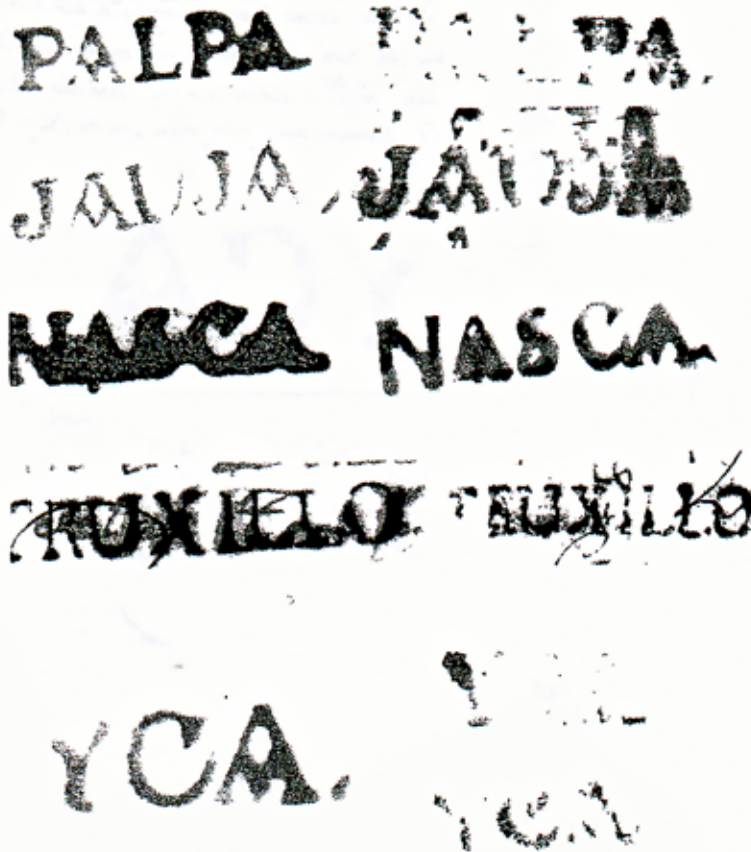 PALPA PALPA.
JAUJA JAUJA
NASCA NASCA
TRUXILLO TRUXILLO
YCA.
YCA